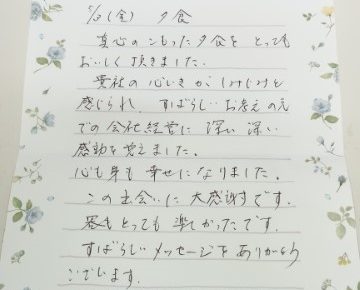 5/2(金) 夕食
真心のこもった夕食を とっても
おいしく頂きました.
貴社の心いきが しみじみと
感じられ、すばらしい お考えの元
での会社経営に 深い 深い
感動を覚えました.
心も身も幸せになりました.
この出会いに 大感謝です.
客もとっても 楽しかったです.
すばらしいメッセージを ありがとう
ございます.